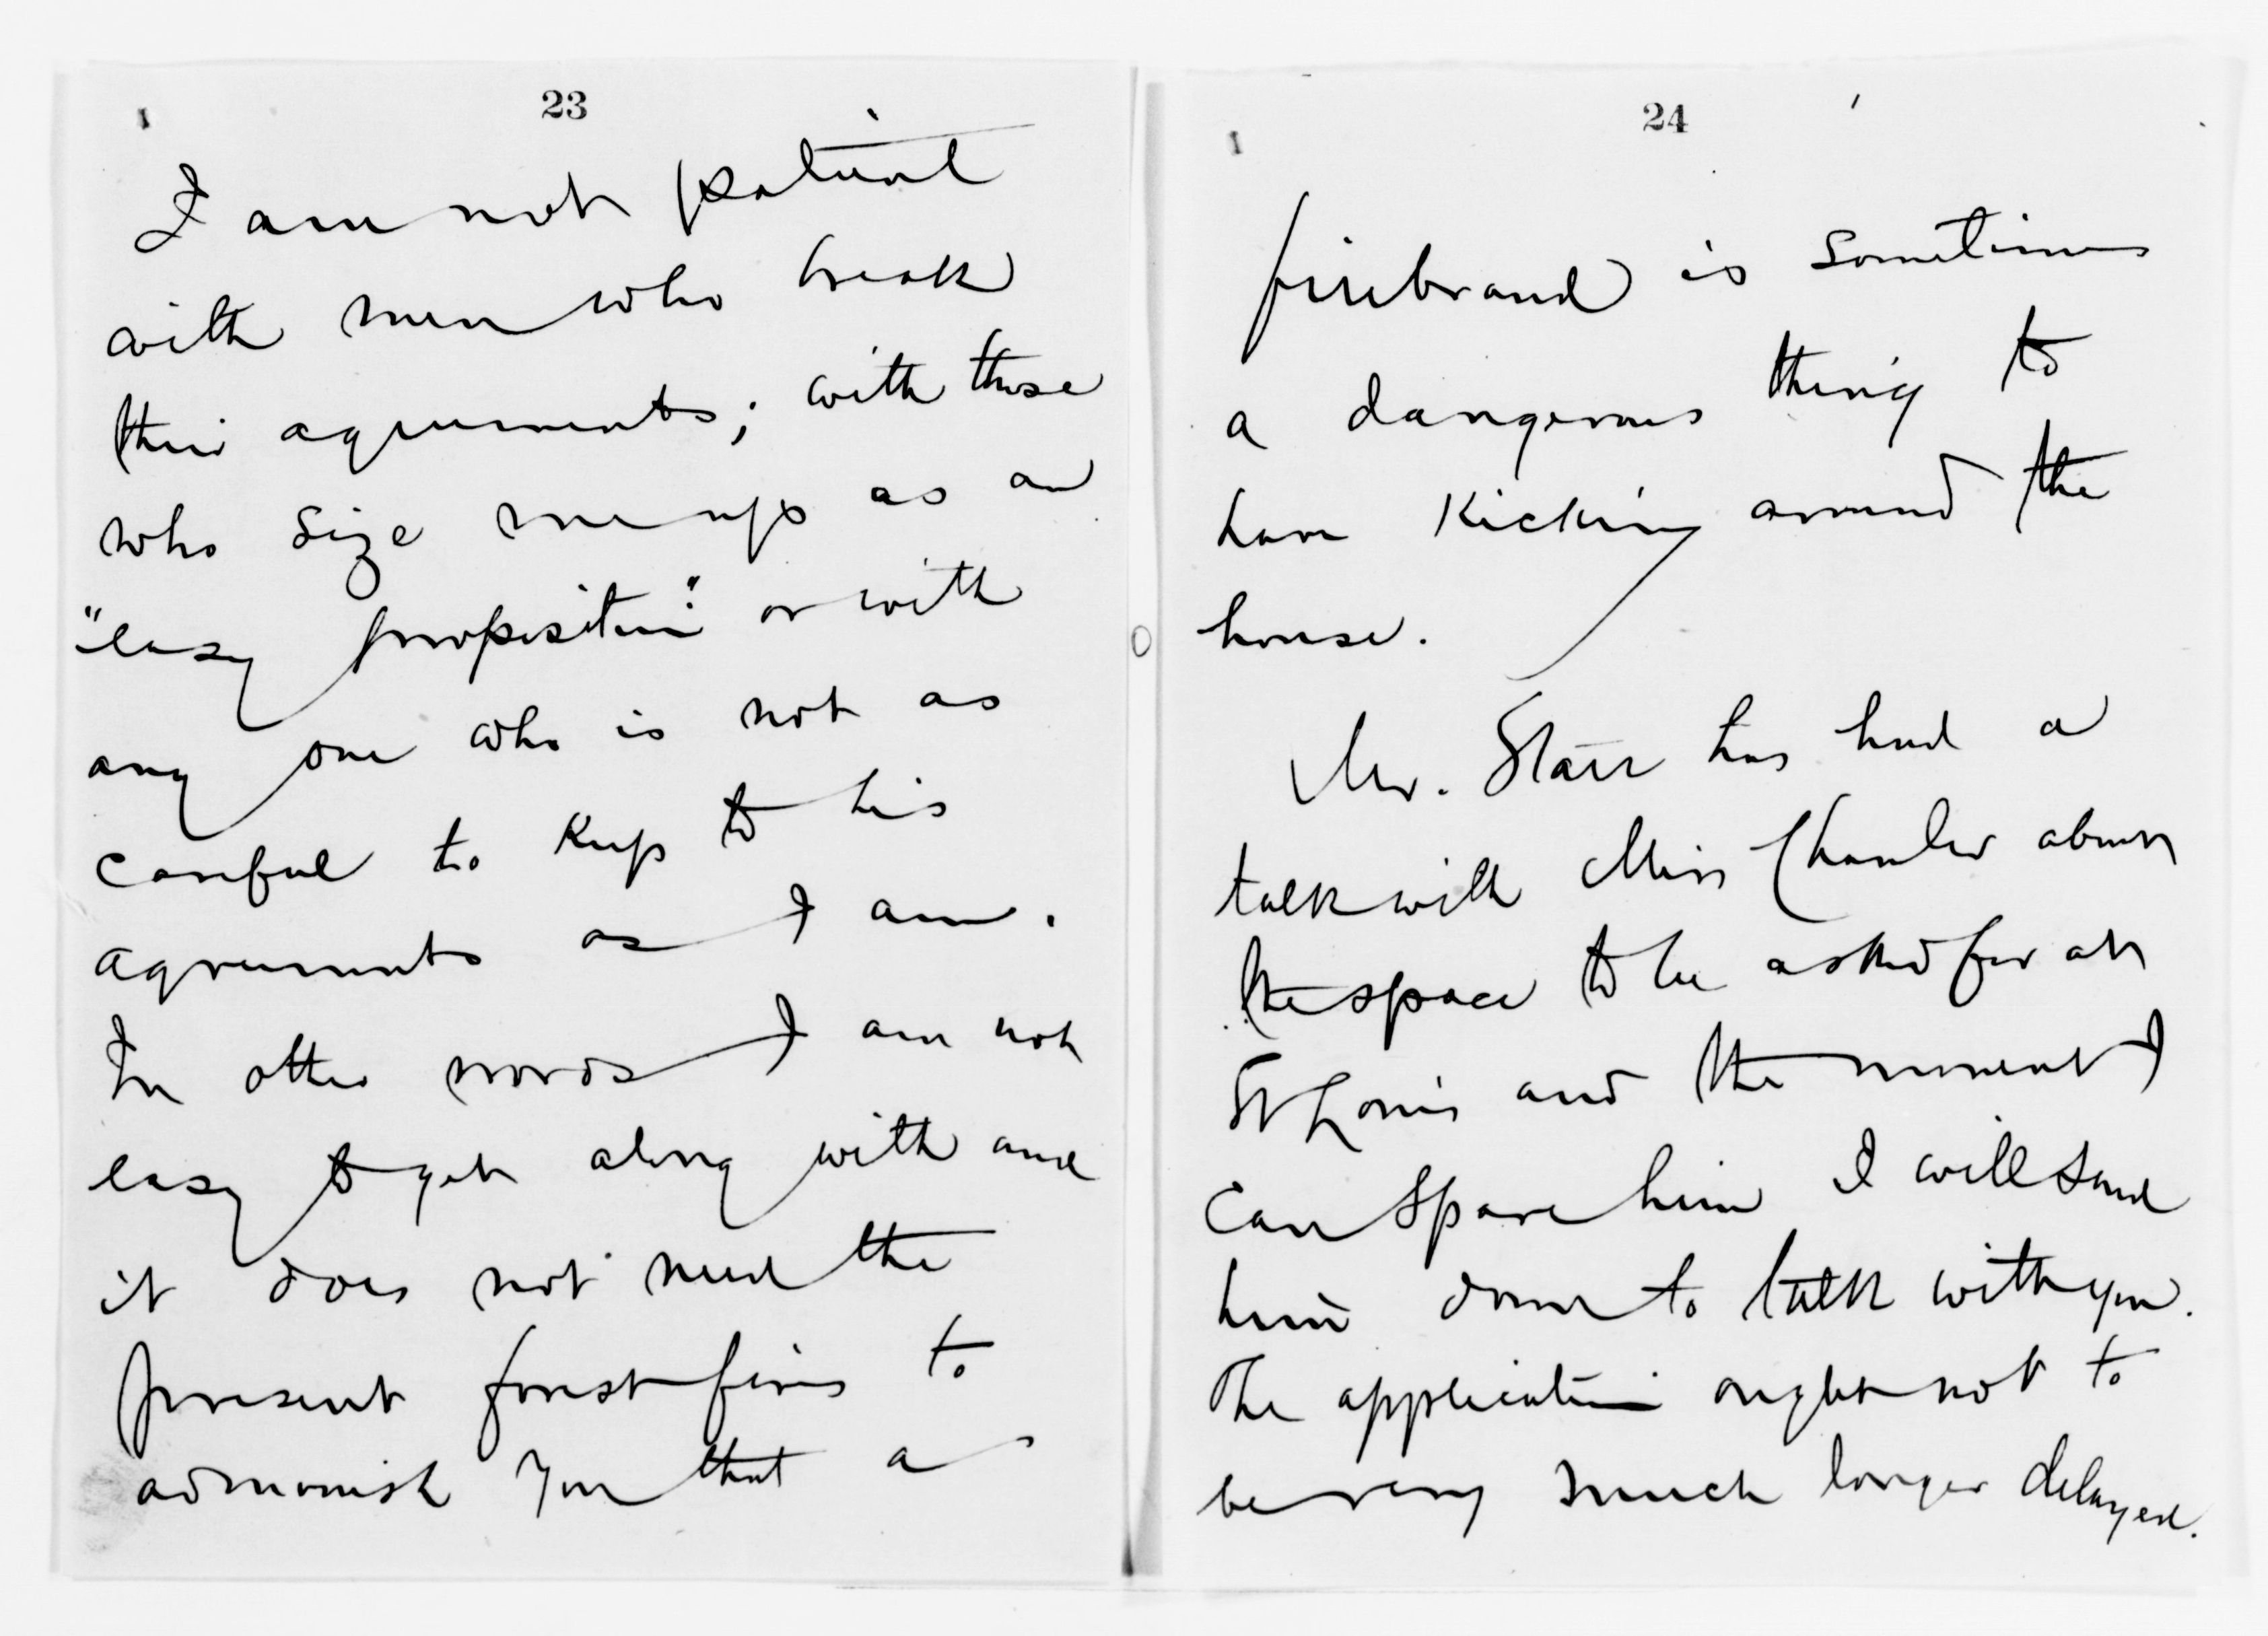 23
I am not patient
with men who break
their agreements; with those
who size me up as an
"easy proposition" or with
any one who is not as
careful to keep to his
agreements as I am.
In other words I am not
easy to get along with and
it does not need the
present forest fires to
admonish you that a
24
firebrand is sometimes
a dangerous thing to
have kicking around the
house.
Mr. Starr has had a
talk with Miss Chanler about
the space to be asked for at
St Louis and the moment I
can spare him I will send
him down to talk with you.
The application ought not to
be very much longer delayed.